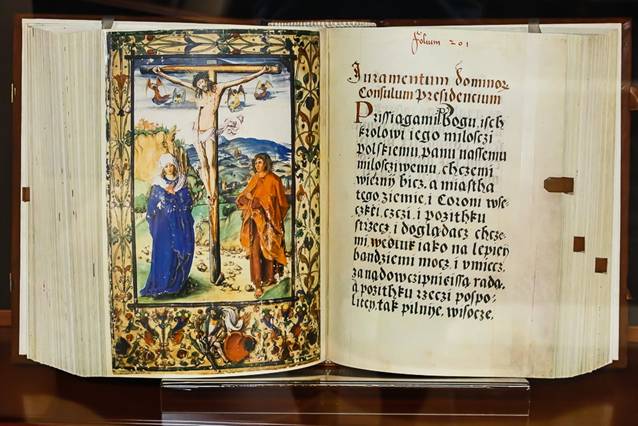 Folium 201
Iuramentum dominor
Consulum Presidencium
Przissiągami Bogu, isch
krolowi iego miłosczi
polskiemu, panu nassemu
miłoscziwemu, chczemi
wierny bicz, a miastha
tego, ziemie, i Coroni wse
czkți, czczi, i pozithku
strzecz i doglądacz chcze
mi wedłuk iako na lepiey
bandziemi mocz i vmiecz,
za nadowczipnieissą radą,
a pozithku rzeczi pospo-
litey, tak pilnye, wisocze,